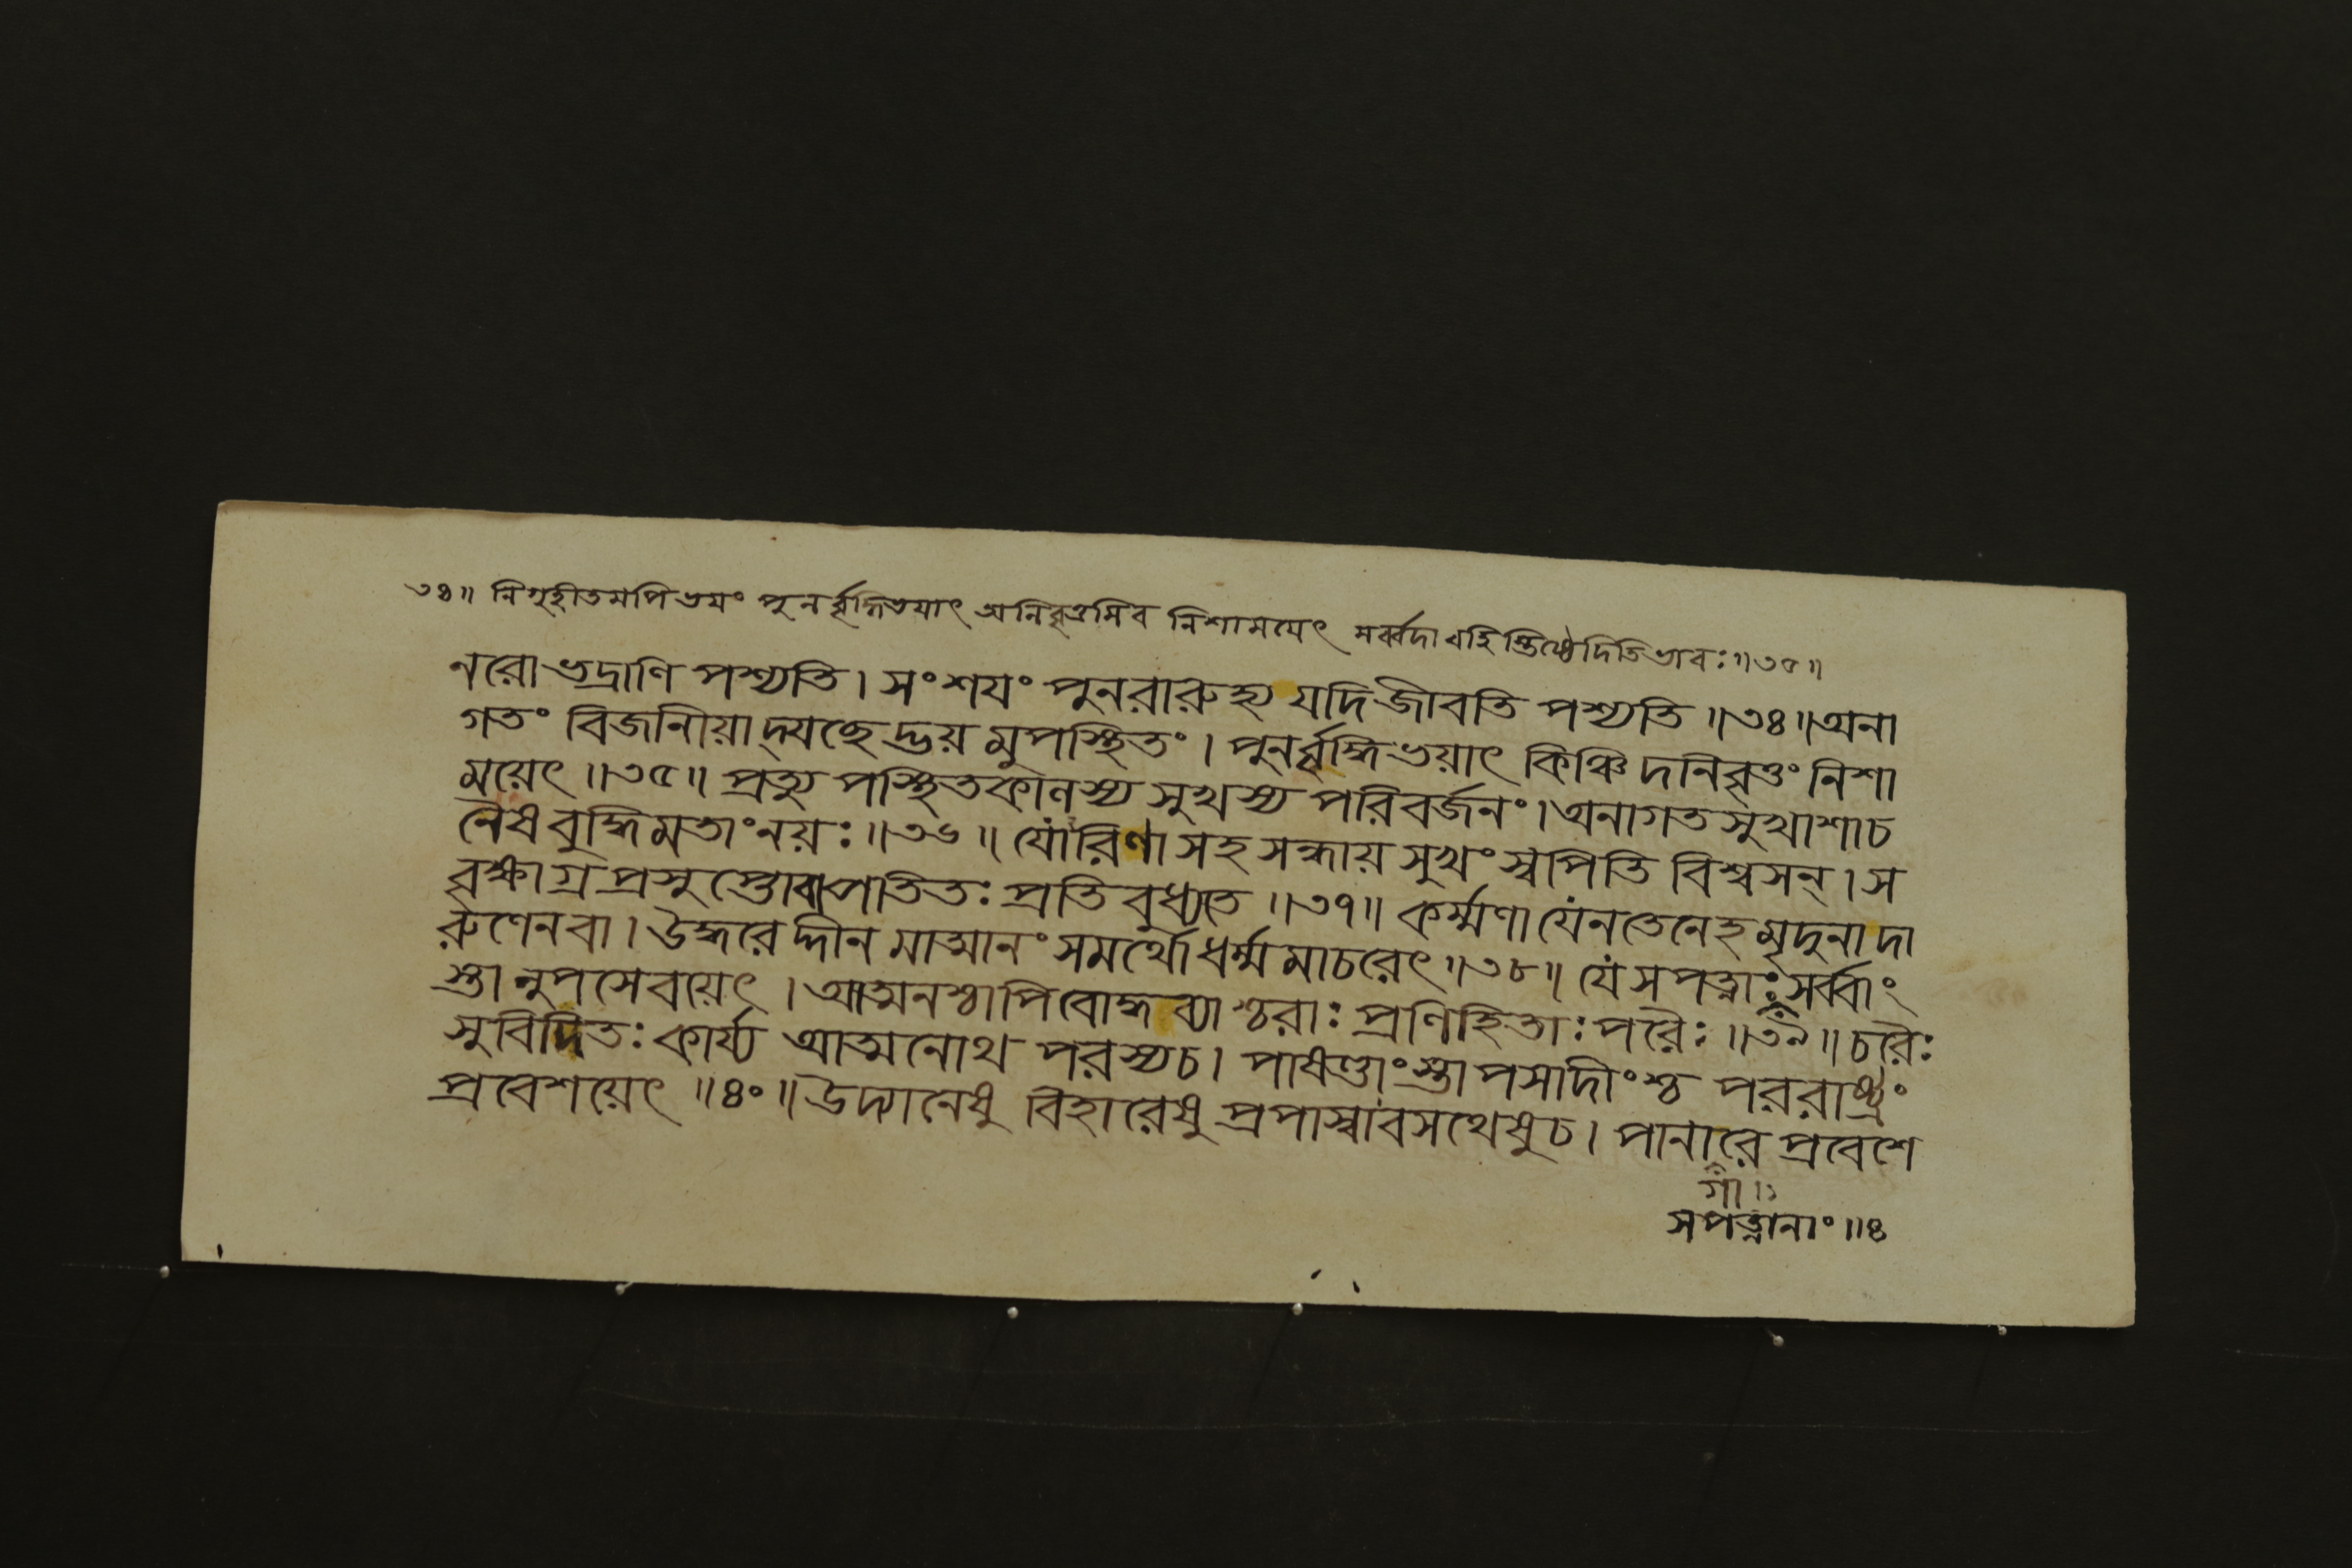 ৩৪॥ নিগৃহীতমপি ভয়ং পুনর্বৃদ্ধিভয়াৎ অনিবৃত্তমিব নিশাময়েৎ সর্ব্বদা বহিস্তিষ্ঠেদিতি ভাবঃ॥৩৫॥
নরো ভদ্রাণি পশ্যতি। সংশয়ং পুনরারুহ্য যদি জীবতি পশ্যতি॥৩৪॥ অনা
গতং বিজানীয়াদ্যচ্ছেদ্ভয়মুপস্থিতং। পুনর্বৃদ্ধিভয়াৎ কিঞ্চিদনিবৃত্তং নিশা
ময়েৎ॥৩৫॥ প্রত্যুপস্থিতকালস্য সুখস্য পরিবর্জনং। অনাগতসুখাশাচ
নৈষ বুদ্ধিমতাং নয়ঃ॥৩৬॥ যোঽরিণা সহ সন্ধায় সুখং স্বপিতি বিশ্বসন্। স
বৃক্ষাগ্রপ্রসুপ্তোবা পতিতঃ প্রতিবুধ্যতে॥৩৭॥ কর্ম্মণা যেন তেনেহ মৃদুনা দা
রুণেনবা। উদ্ধরেদ্দীনমাত্মানং সমর্থো ধর্ম্মমাচরেৎ॥৩৮॥ যে সপত্নাঃ সর্ব্বাং
স্তানুপসেবয়েৎ। আত্মনশ্চাপি বোদ্ধব্যাশ্চরাঃ প্রণিহিতাঃ পরৈঃ॥৩৯॥ চরৈঃ
সুবিদিতঃ কার্য্য আত্মনোথ পরস্যচ। পাষণ্ডাংস্তাপসাদীংশ্চ পররাষ্ট্রং
প্রবেশয়েৎ॥৪০॥ উদ্যানেষু বিহারেষু প্রপাস্বাবসথেষুচ। পানারে প্রবেশে
গা
সপত্নানাং॥৪